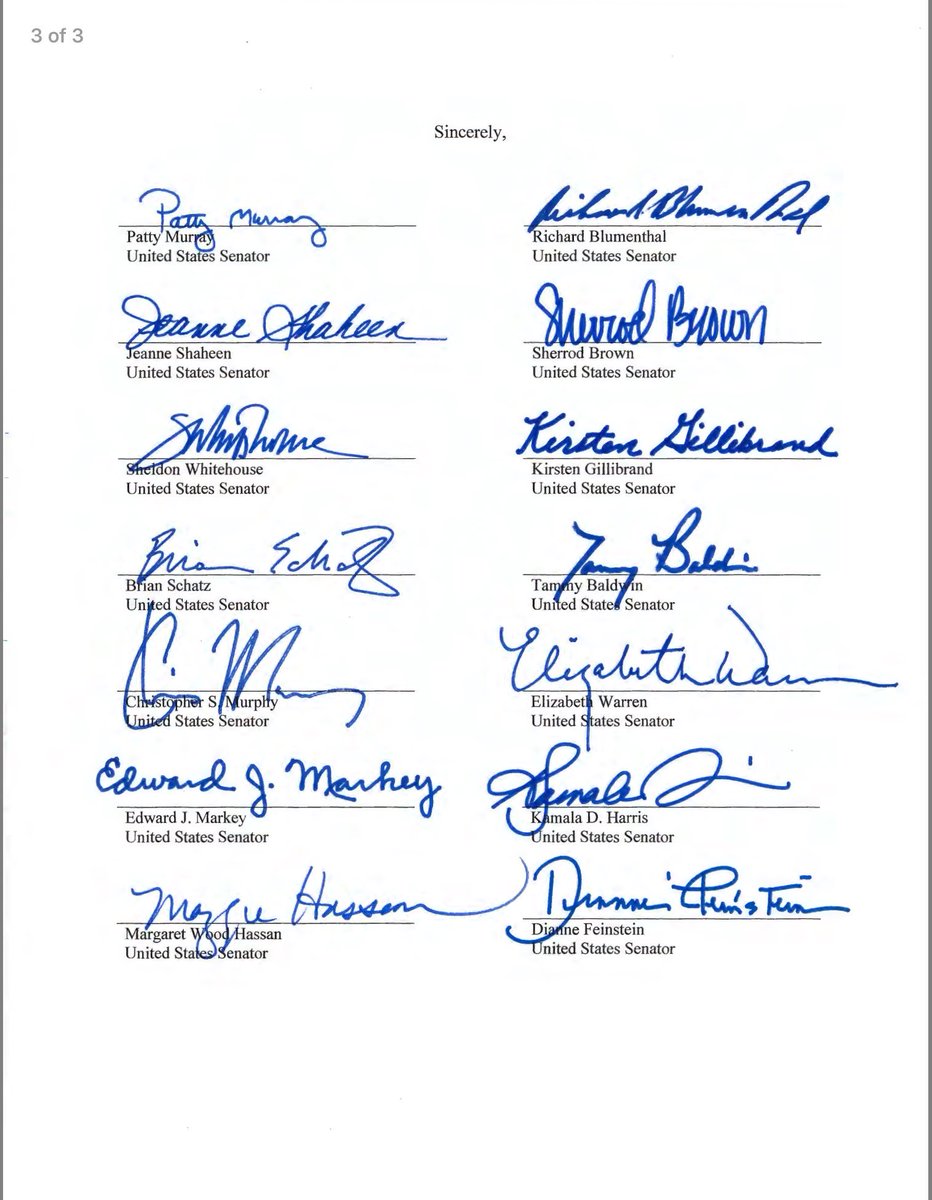 3 of 3
Sincerely,
Patty Murray
Patty Murray
United States Senator
Richard Blumenthal
Richard Blumenthal
United States Senator
Jeanne Shaheen
Jeanne Shaheen
United States Senator
Sherrod Brown
Sherrod Brown
United States Senator
SWhitehouse
Sheldon Whitehouse
United States Senator
Kirsten Gillibrand
Kirsten Gillibrand
United States Senator
Brian Schatz
Brian Schatz
United States Senator
Tammy Baldwin
Tammy Baldwin
United States Senator
Christopher S. Murphy
United States Senator
Elizabeth Warren
Elizabeth Warren
United States Senator
Edward J. Markey
Edward J. Markey
United States Senator
Kamala
Kamala D. Harris
United States Senator
Maggie Hassan
Margaret Wood Hassan
United States Senator
Dianne Feinstein
Dianne Feinstein
United States Senator